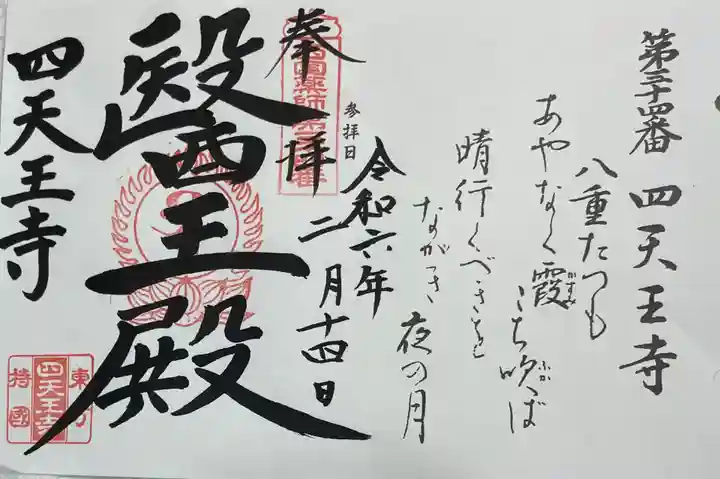 第三十四番 四天王寺
八重たつも
あやなく霞
かすみ
こち吹ば
ふか
晴行くべきを
ながき夜の月
奉拝
参拝日
令和六年
二月十四日
醫王殿
四天王寺
四天王寺
持國